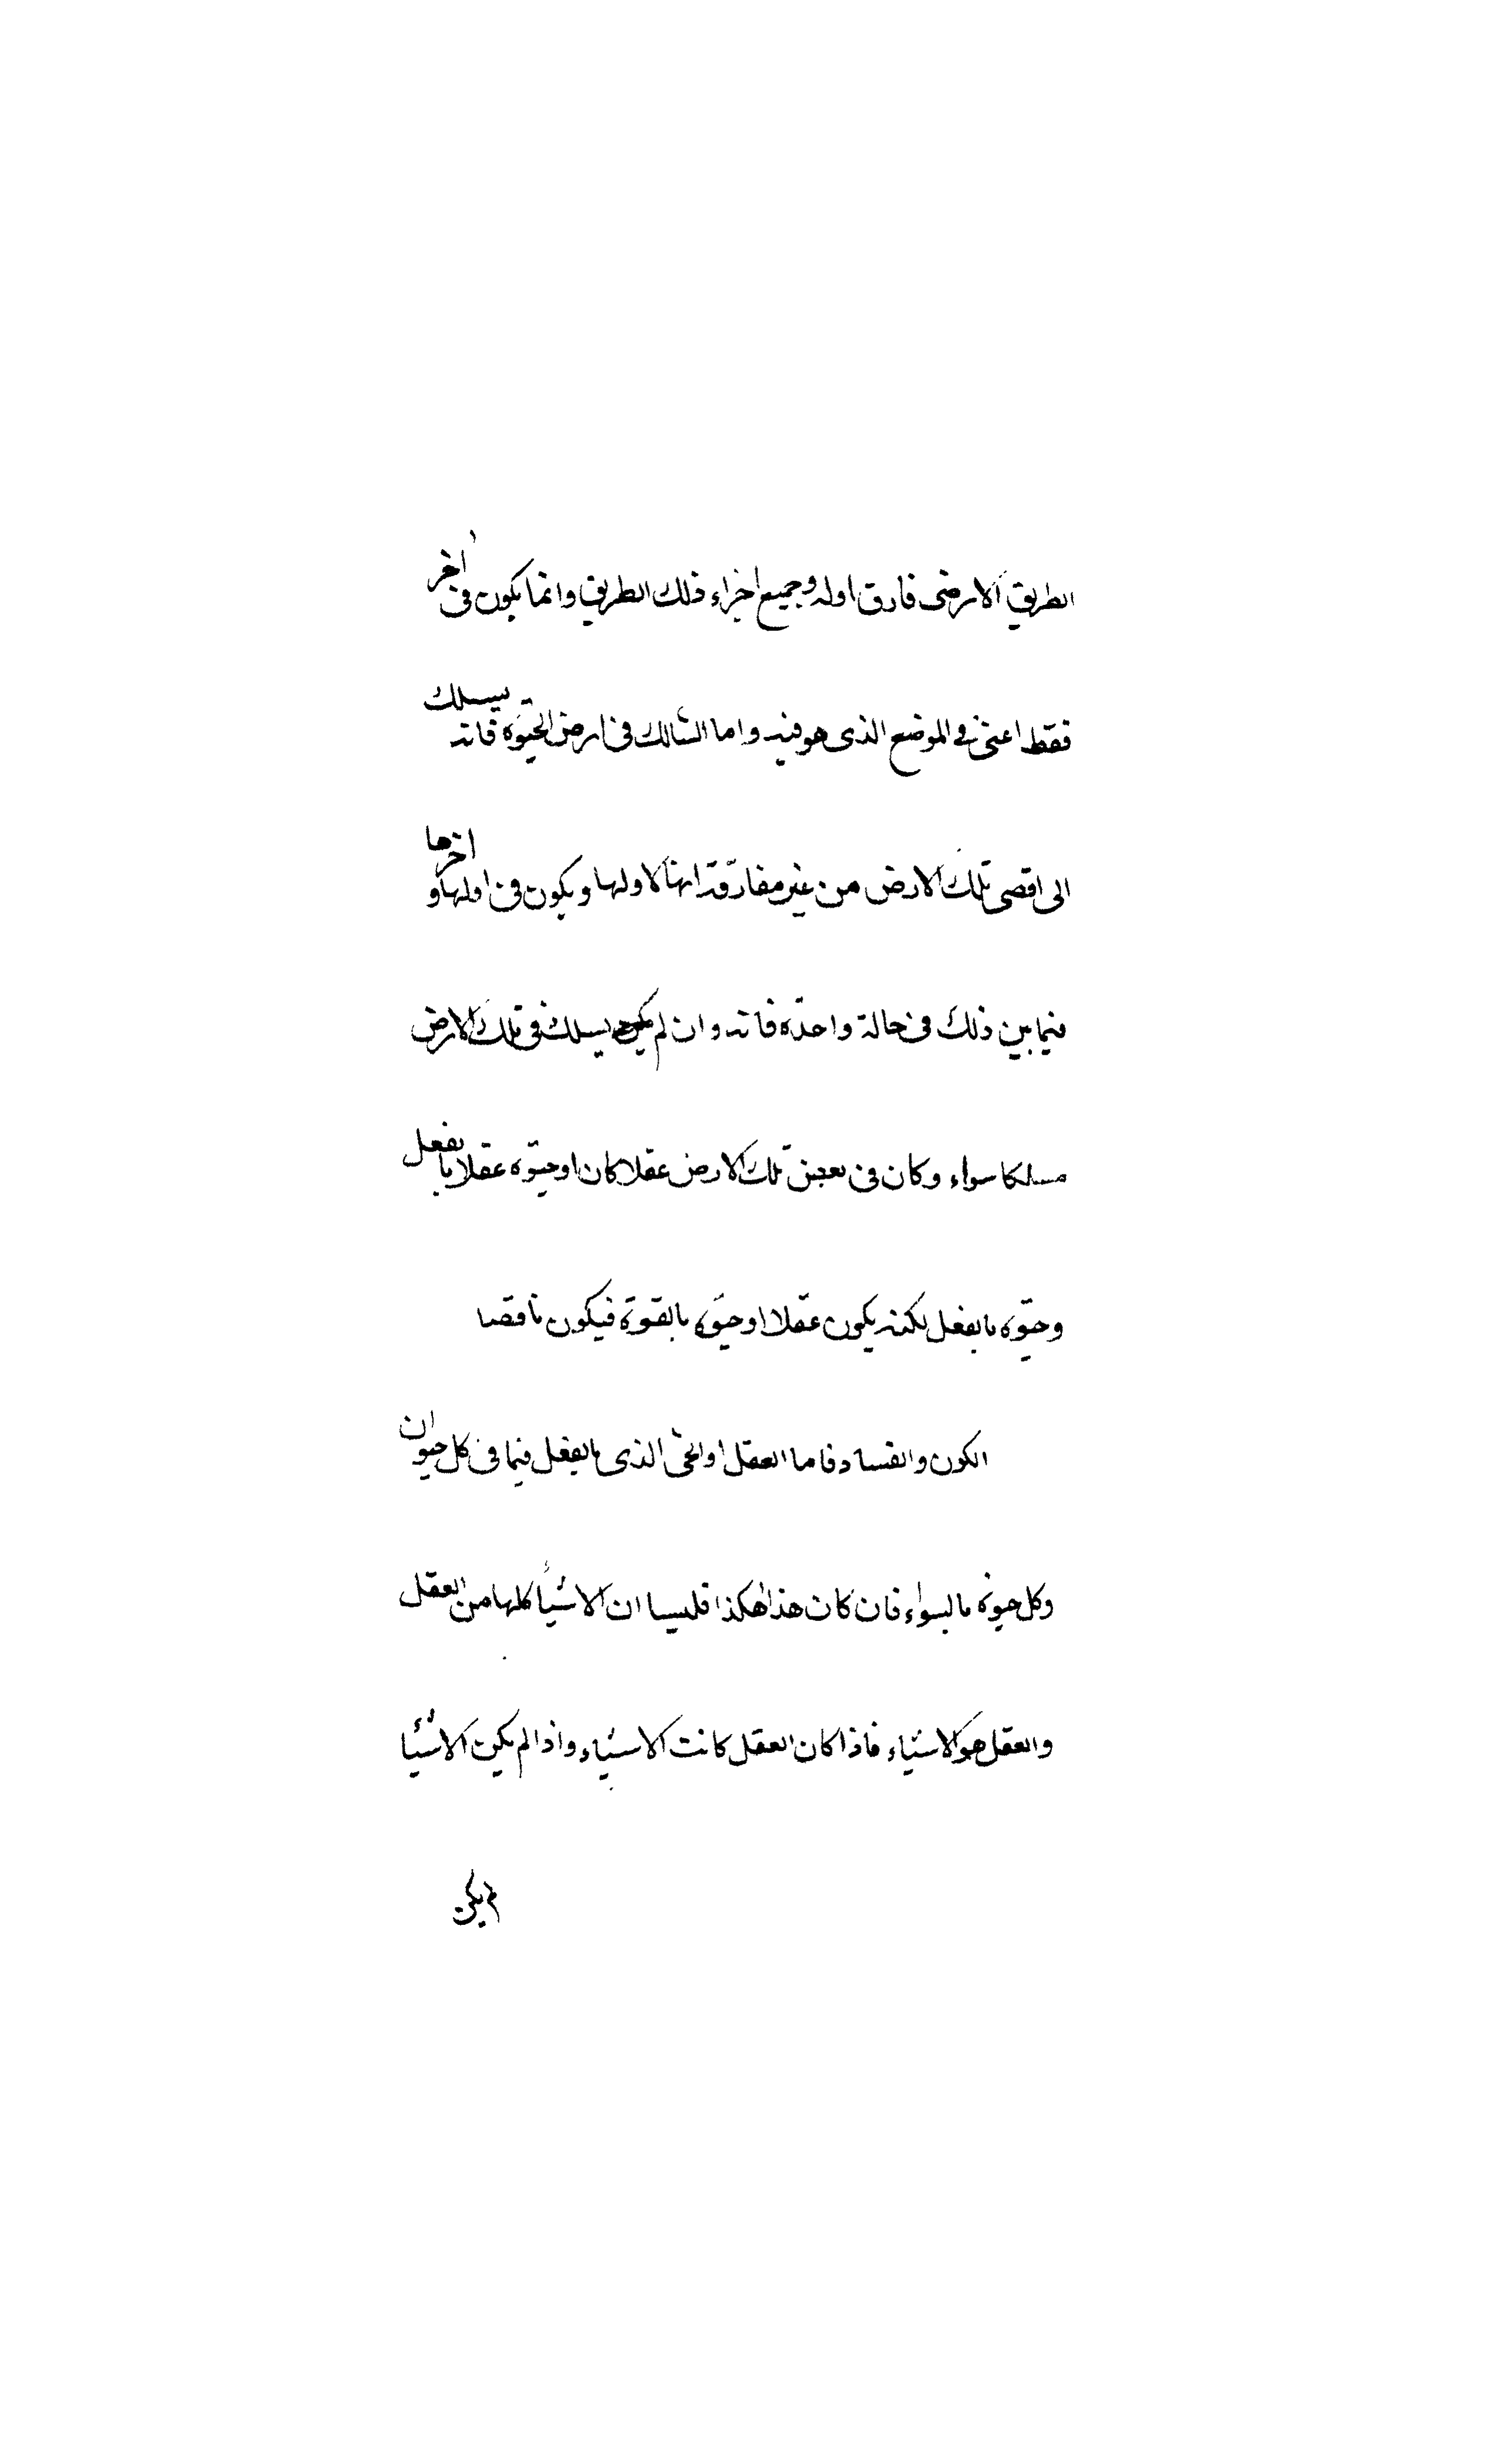 الطريق الارضى فارق اوله وجميع اجزاء ذلك الطريق وانما يكون فى اخر
فقط اعنى فى الموضع الذى هو فيه واما السالك فى ارض الحيوة فانه يسلك
الى اقصى تلك الارض من غير مفارقة انها لاولها ويكون فى اولها واخرها
فيما بين ذلك فى حالة واحدة فانه وان لم يكن يسلك فى تلك الارض
مسلكا سواء وكان فى بعض تلك الارض عقلا كان او حيوة عقلا بالفعل
وحيوة بالفعل لكنه يكون عقلا او حيوة بالقوة فيكون ناقصا
الكون والفساد فاما العقل او الحى الذى بالفعل فيما فى كل حيوان
وكل حيوة بالسواء فان كان هذا هكذا فلسيا ان الاشيأ كلها من العقل
والعقل هو الاشياء فاذا كان العقل كانت الاشياء واذا لم يكن الاشيأ
لم يكن